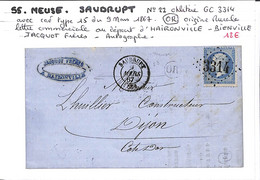 55. MEUSE. SAUDRUPT N° 22 oblitéré GC 3314
avec cad type 15 du 9 Mars 1867. (OR) origine rurale
lettre commerciale au départ d'HAIRONVILLE - BIENVILLE
JACQUET Frères - Autographe. 12€
SAUDRUPT
OR
3314
HAIRONVILLE
MARS
67
Lhuillier Constructeur
Dijon
Côte D'or